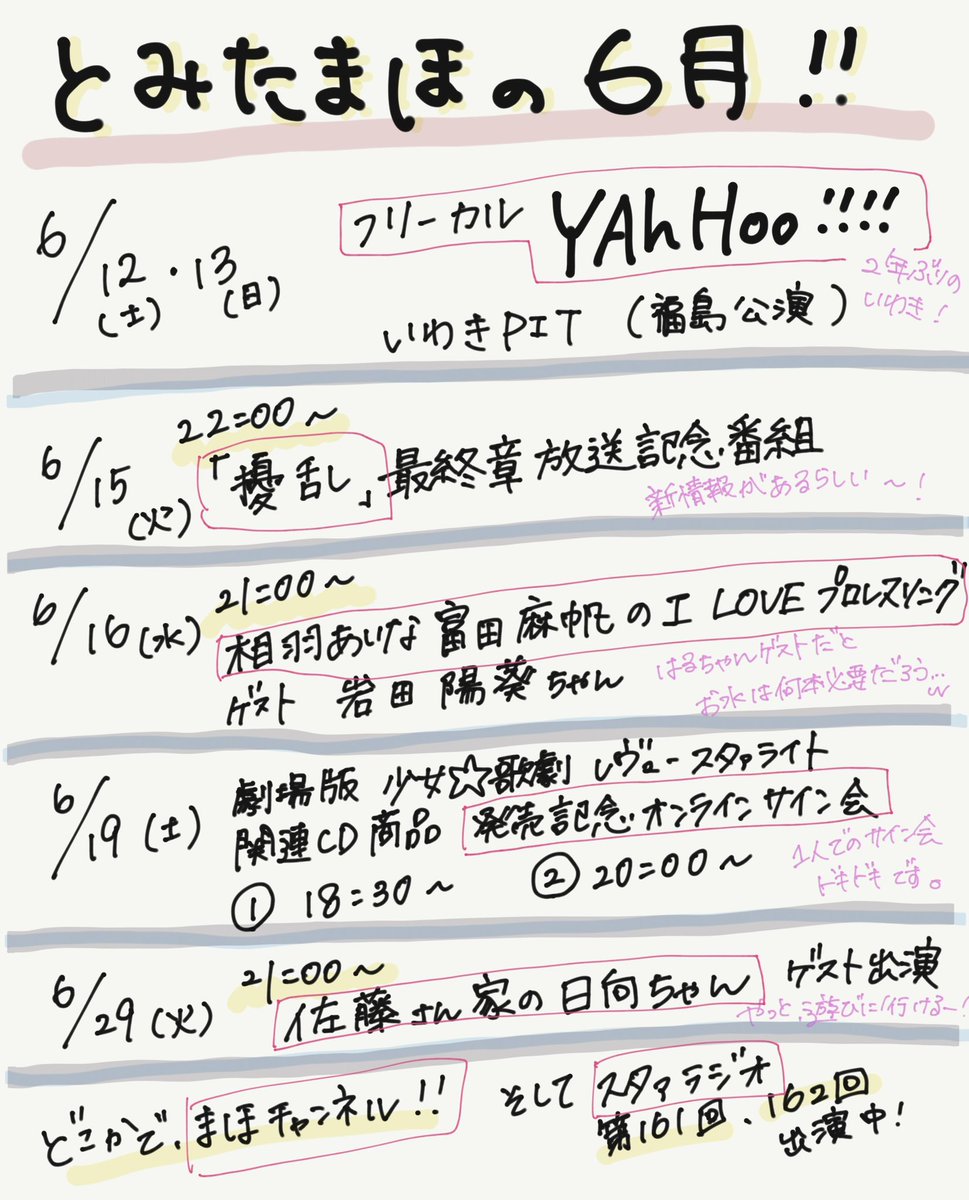 とみたまほの6月!!
6/12(土)・13(日)
フリーカル YAhHoo!!!!
2年ぶりの
いわき!
いわきPIT (福島公演)
6/15(火)
22:00~
「擾乱」最終章 放送記念番組
新情報があるらしい~!
6/16(水)
21:00~
相羽あいな 富田麻帆の I LOVE プロレスリング
ゲスト 岩田陽葵ちゃん
はるちゃんゲストだと
お水は何本必要だろう…w
6/19(土)
劇場版 少女☆歌劇 レヴュースタァライト
関連CD商品 発売記念オンラインサイン会
① 18:30~ ② 20:00~
1人でのサイン会
ドキドキです。
6/29(火)
21:00~
佐藤さん家の日向ちゃん ゲスト出演
やっと遊びに行けるー!
どこかで、まほチャンネル!!
そして スタァラジオ
第161回、162回
出演中!